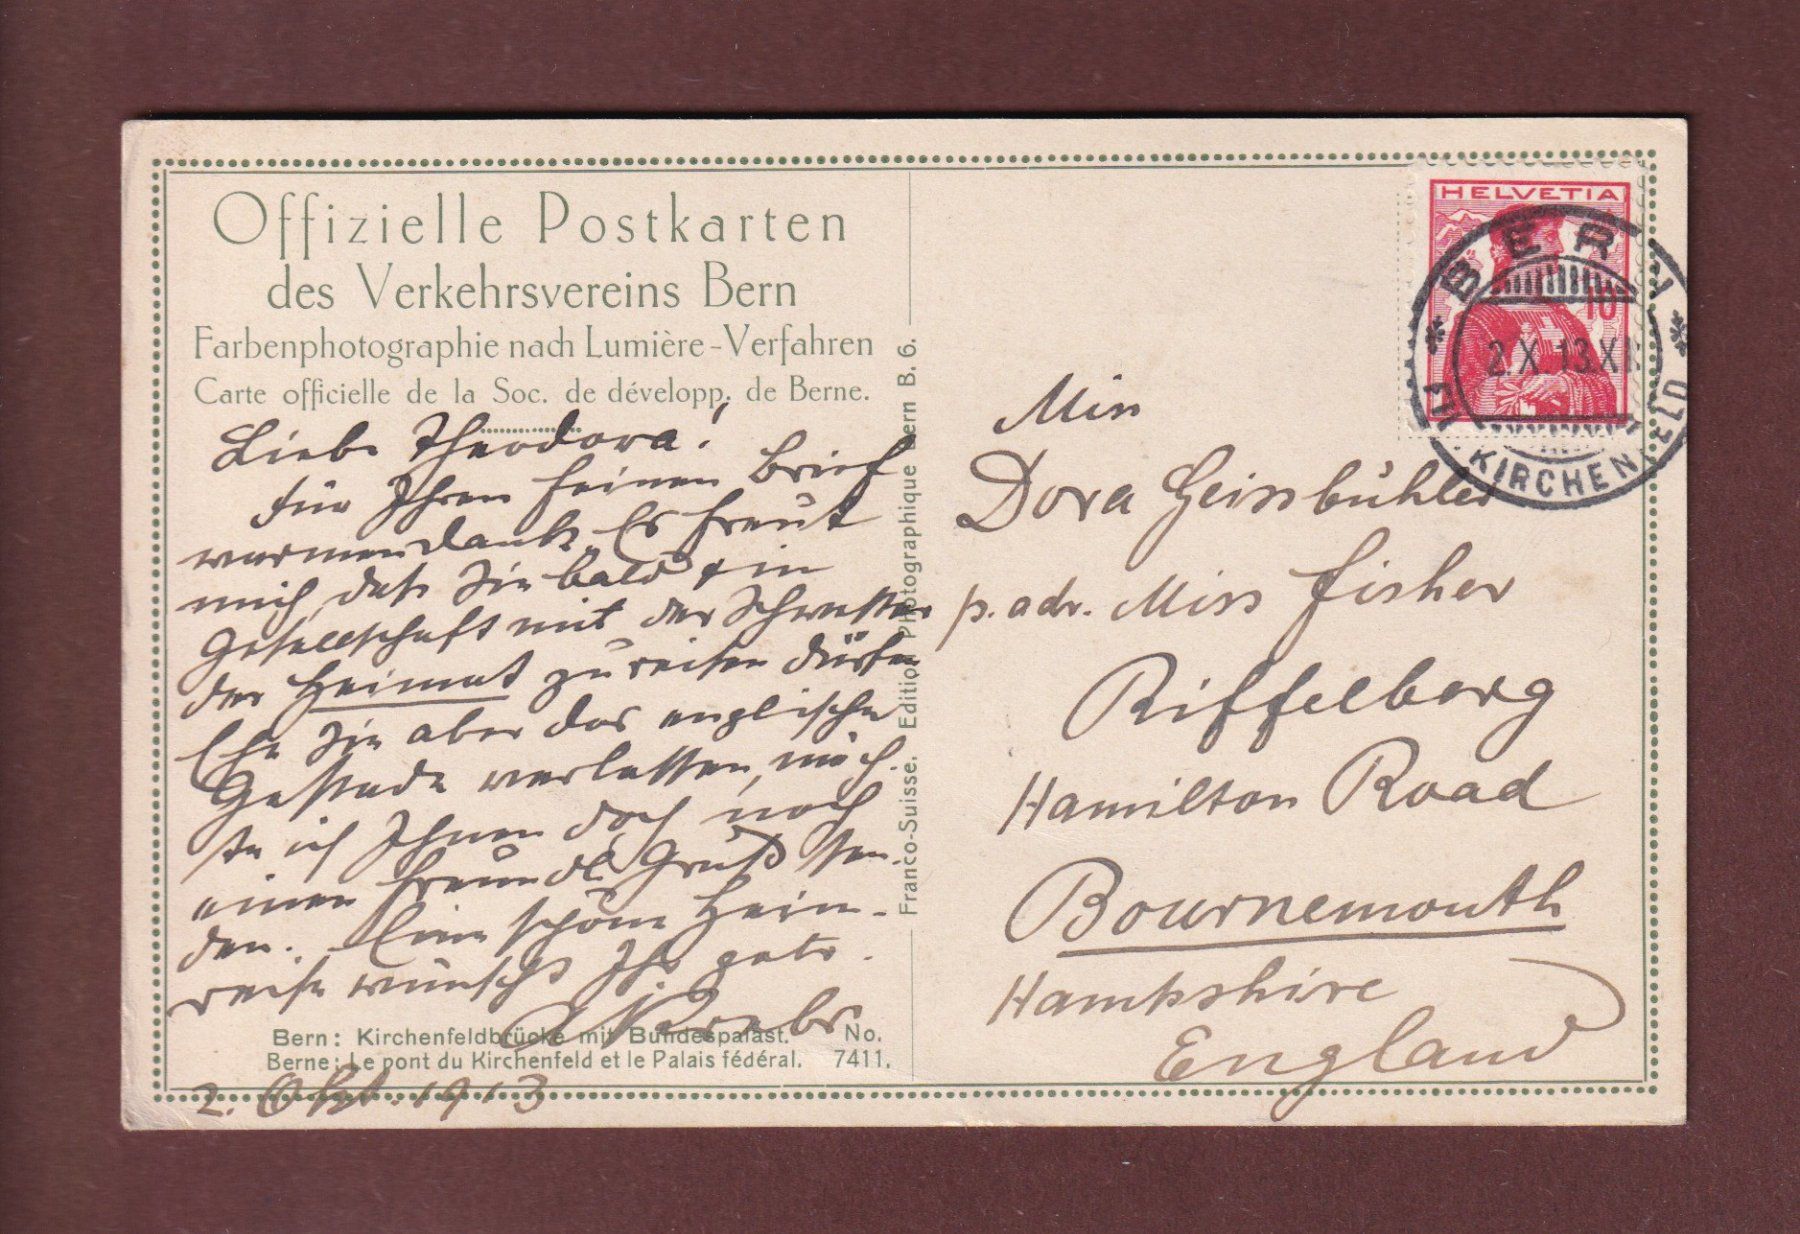 Offizielle Postkarten
des Verkehrsvereins Bern
Farbenphotographie nach Lumière-Verfahren
Carte officielle de la Soc. de développ. de Berne.
Liebe Theodora!
Für Ihren feinen Brief
warmen Dank. Es freut
mich, daß Sie bald & in
Gesellschaft mit der Schwester
der Heimat zu reisen dürfen
Ehe Sie aber das englische
Gestade verlassen, möch-
te ich Ihnen doch noch
einen freundl. Gruß sen-
den. Eine schöne Heim-
reise wünscht Ihr
Krebs
Bern: Kirchenfeldbrücke mit Bundespalast. No.
Berne: Le pont du Kirchenfeld et le Palais fédéral. 7411.
2. Okt. 1913
Franco-Suisse. Edition Photographique Bern B. 6.
HELVETIA
10
BERN
2.X.13.XI
KIRCHENFELD
Miss
Dora Geissbühler
p. adr. Miss Fisher
Riffelberg
Hamilton Road
Bournemouth
Hampshire
England